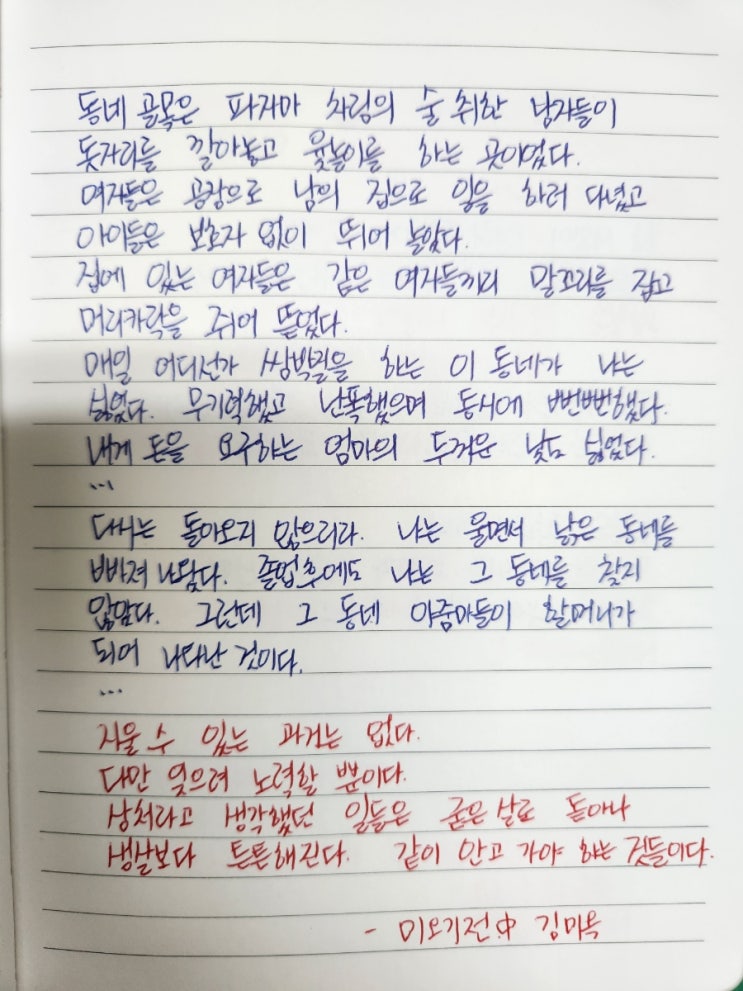 동네 골목은 파자마 차림의 술 취한 남자들이
돗자리를 깔아놓고 윷놀이를 하는 곳이었다.
여자들은 공장으로 남의 집으로 일을 하러 다녔고
아이들은 보호자 없이 뛰어 놀았다.
집에 있는 여자들은 같은 여자들끼리 말꼬리를 잡고
머리카락을 쥐어 뜯었다.
매일 어디선가 쌈박질을 하는 이 동네가 나는
싫었다. 무기력했고 난폭했으며 동시에 뻔뻔했다.
내게 돈을 요구하는 엄마의 두꺼운 낯도 싫었다.
...
다시는 돌아오지 않으리라. 나는 울면서 낡은 동네를
빠져 나왔다. 졸업후에도 나는 그 동네를 찾지
않았다. 그런데 그 동네 아줌마들이 할머니가
되어 나타난 것이다.
...
지울 수 있는 과거는 없다.
다만 잊으려 노력할 뿐이다.
상처라고 생각했던 일들은 굳은 살로 돋아나
생살보다 튼튼해진다. 같이 안고 가야 하는 것들이다.
- 미오기전 中 김미옥